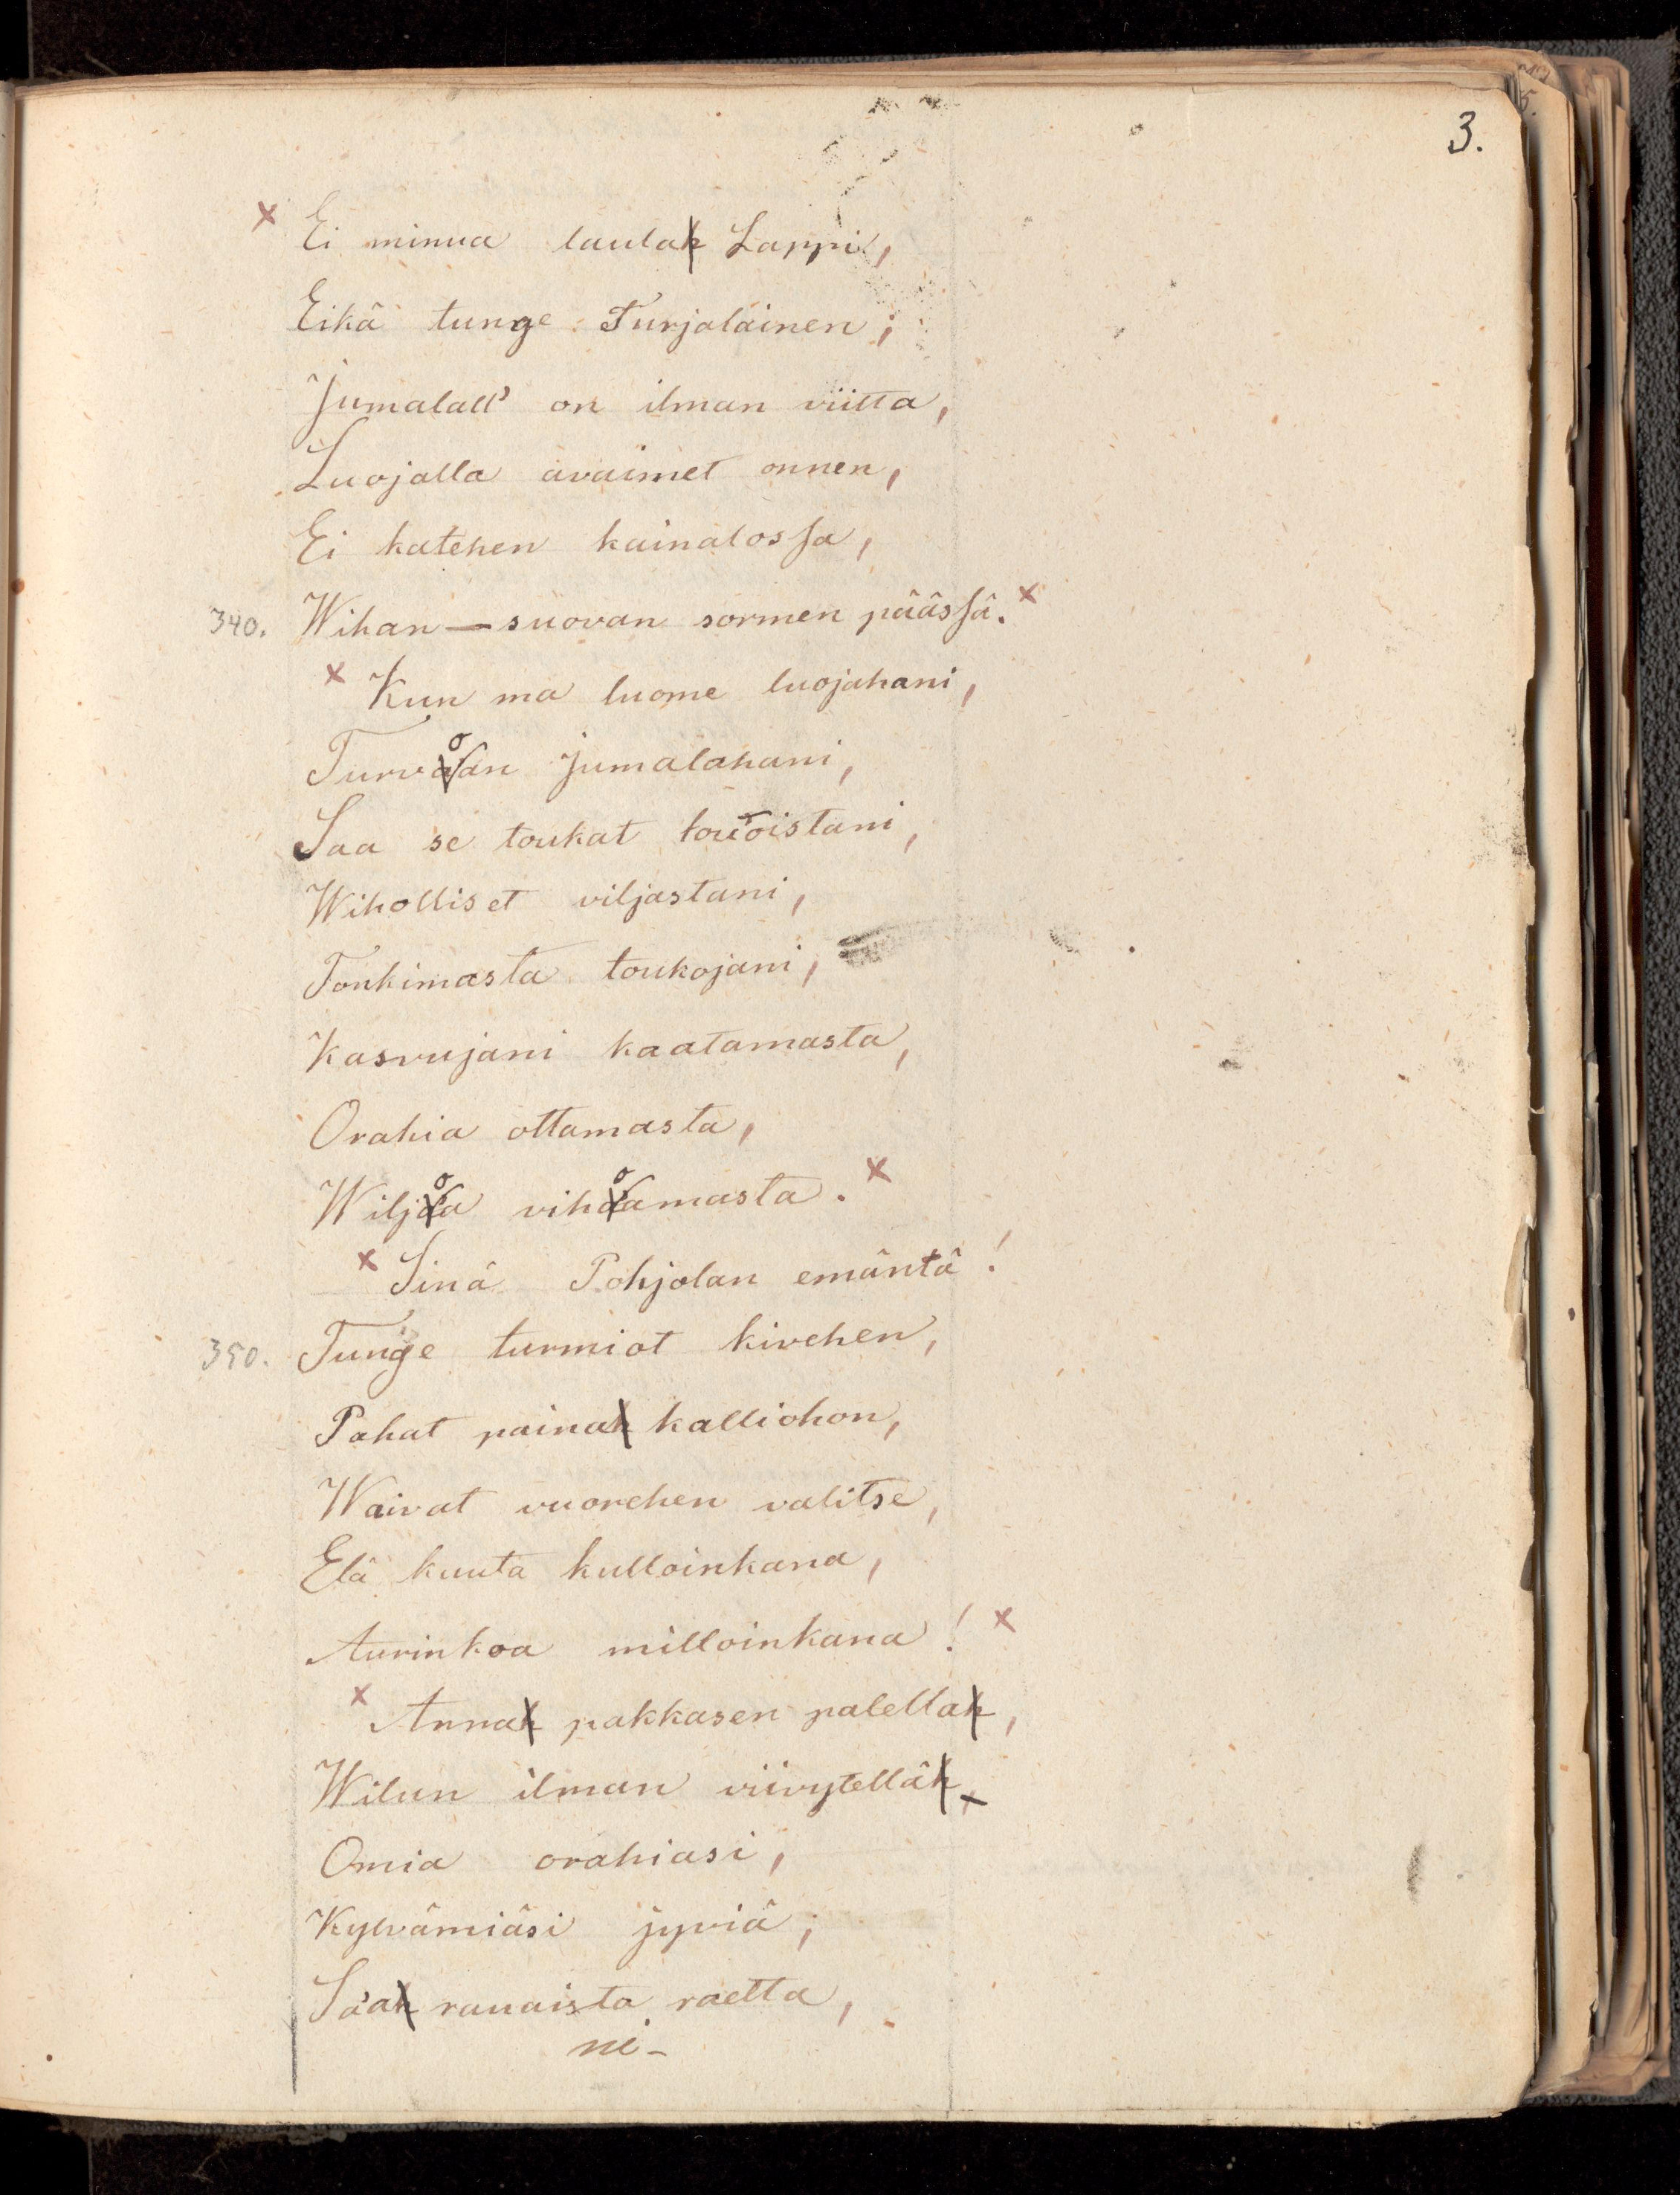 3.
x Ei minua laulah Lappi,
Eikä tunge Turjalainen;
Jumalall' on ilman viitta,
Luojalla avaimet onnen,
Ei katehen kainalossa,
340. Wihan—suovan sormen päässä. x
x Kun ma luome luojahani,
Turvoan Jumalahani,
Saa se toukat touoistani,
Wiholliset viljastani,
Tonkimasta toukojani,
Kasvujani kaatamasta,
Orahia ottamasta,
Wiljoa vihoamasta. x
x Sinä Pohjolan emäntä!
350. Tunge turmiot kivehen,
Pahat painah kalliohon,
Waivat vuorehen valitse,
Elä kuuta kulloinkana,
Aurinkoa milloinkana! x
x Annah pakkasen palellah,
Wilun ilman viivytelläh,
Omia orahiasi,
Kylvämiäsi jyviä;
Saah rauaista raetta,
ni-